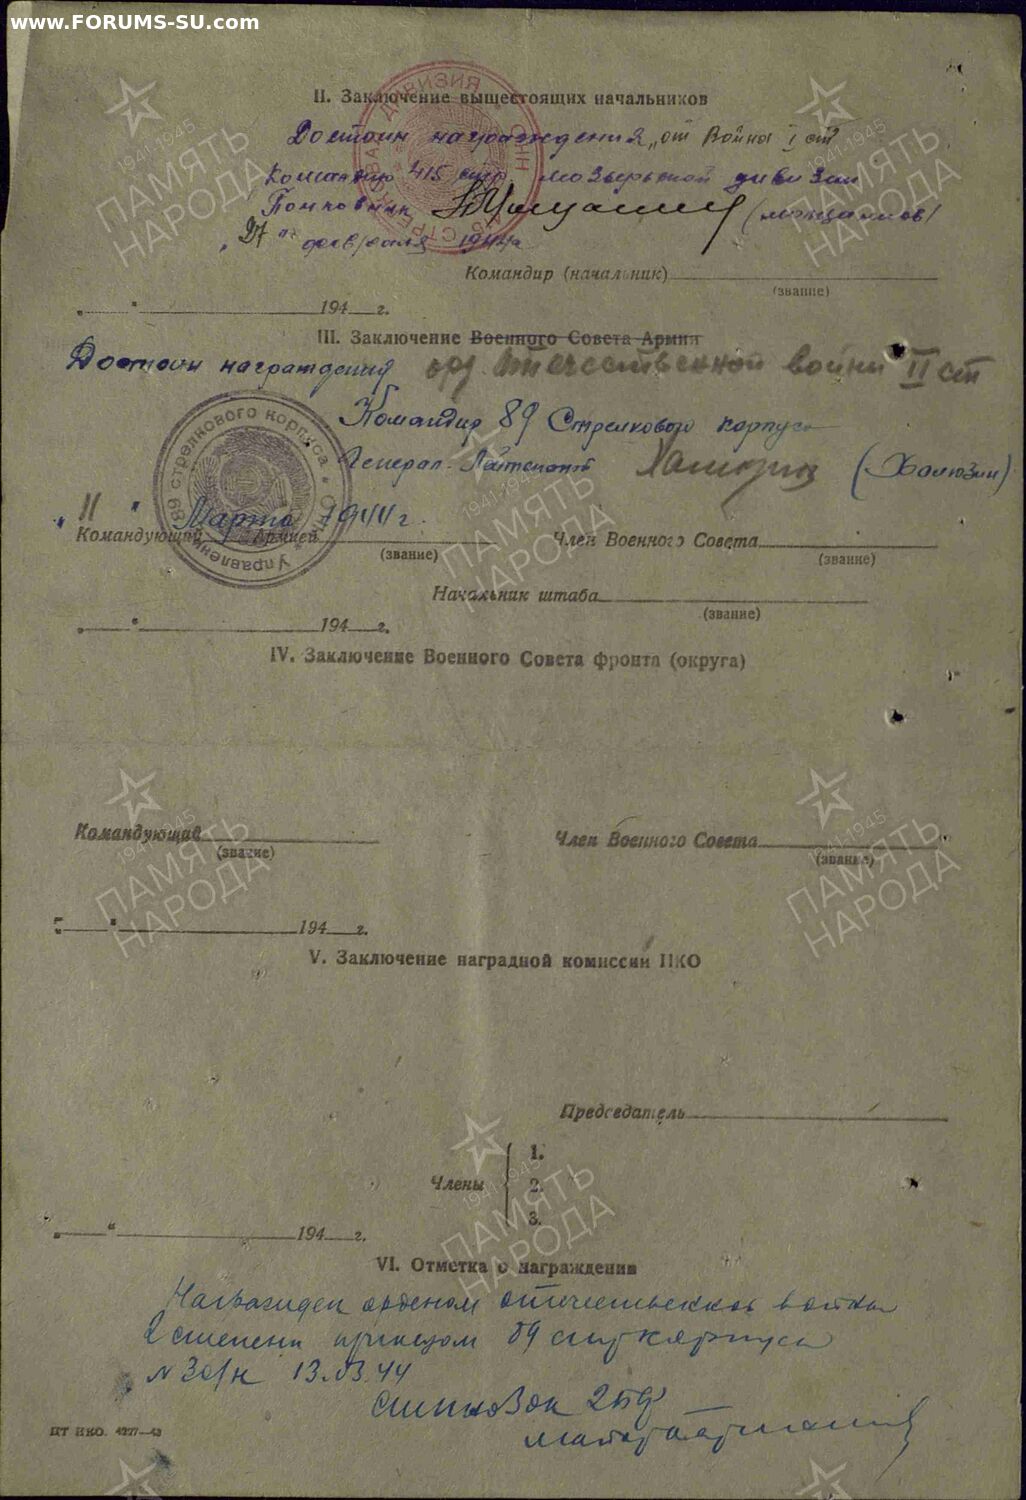 www.FORUMS-SU.com
II. Заключение вышестоящих начальников
Достоин награждения „от войны I ст"
415 стр. мозырьской дивизии
Полковник (Мощалков)
„27" февраля 1944г
Командир (начальник)
(звание)
„ " 194 г.
III. Заключение Военного Совета Армии
Достоин награждения орд Отечественной войны II ст
Командир 89 Стрелкового корпуса
Генерал-Лейтенант (Халюзин)
„11" Марта 1944 г.
Командующий Армией
(звание)
Член Военного Совета
(звание)
Управление 89 стрелкового корпуса
Начальник штаба
(звание)
„ " 194 г.
IV. Заключение Военного Совета фронта (округа)
Командующий
(звание)
Член Военного Совета
(звание)
„ " 194 г.
V. Заключение наградной комиссии НКО
Председатель
Члены
1.
2.
3.
„ " 194 г.
VI. Отметка о награждении
Награжден орденом отечественной войны
2 степени приказом 89 стр корпуса
№ 30/н 13.03.44
ЦТ НКО. 4227—43
1941-1945
ПАМЯТЬ
НАРОДА